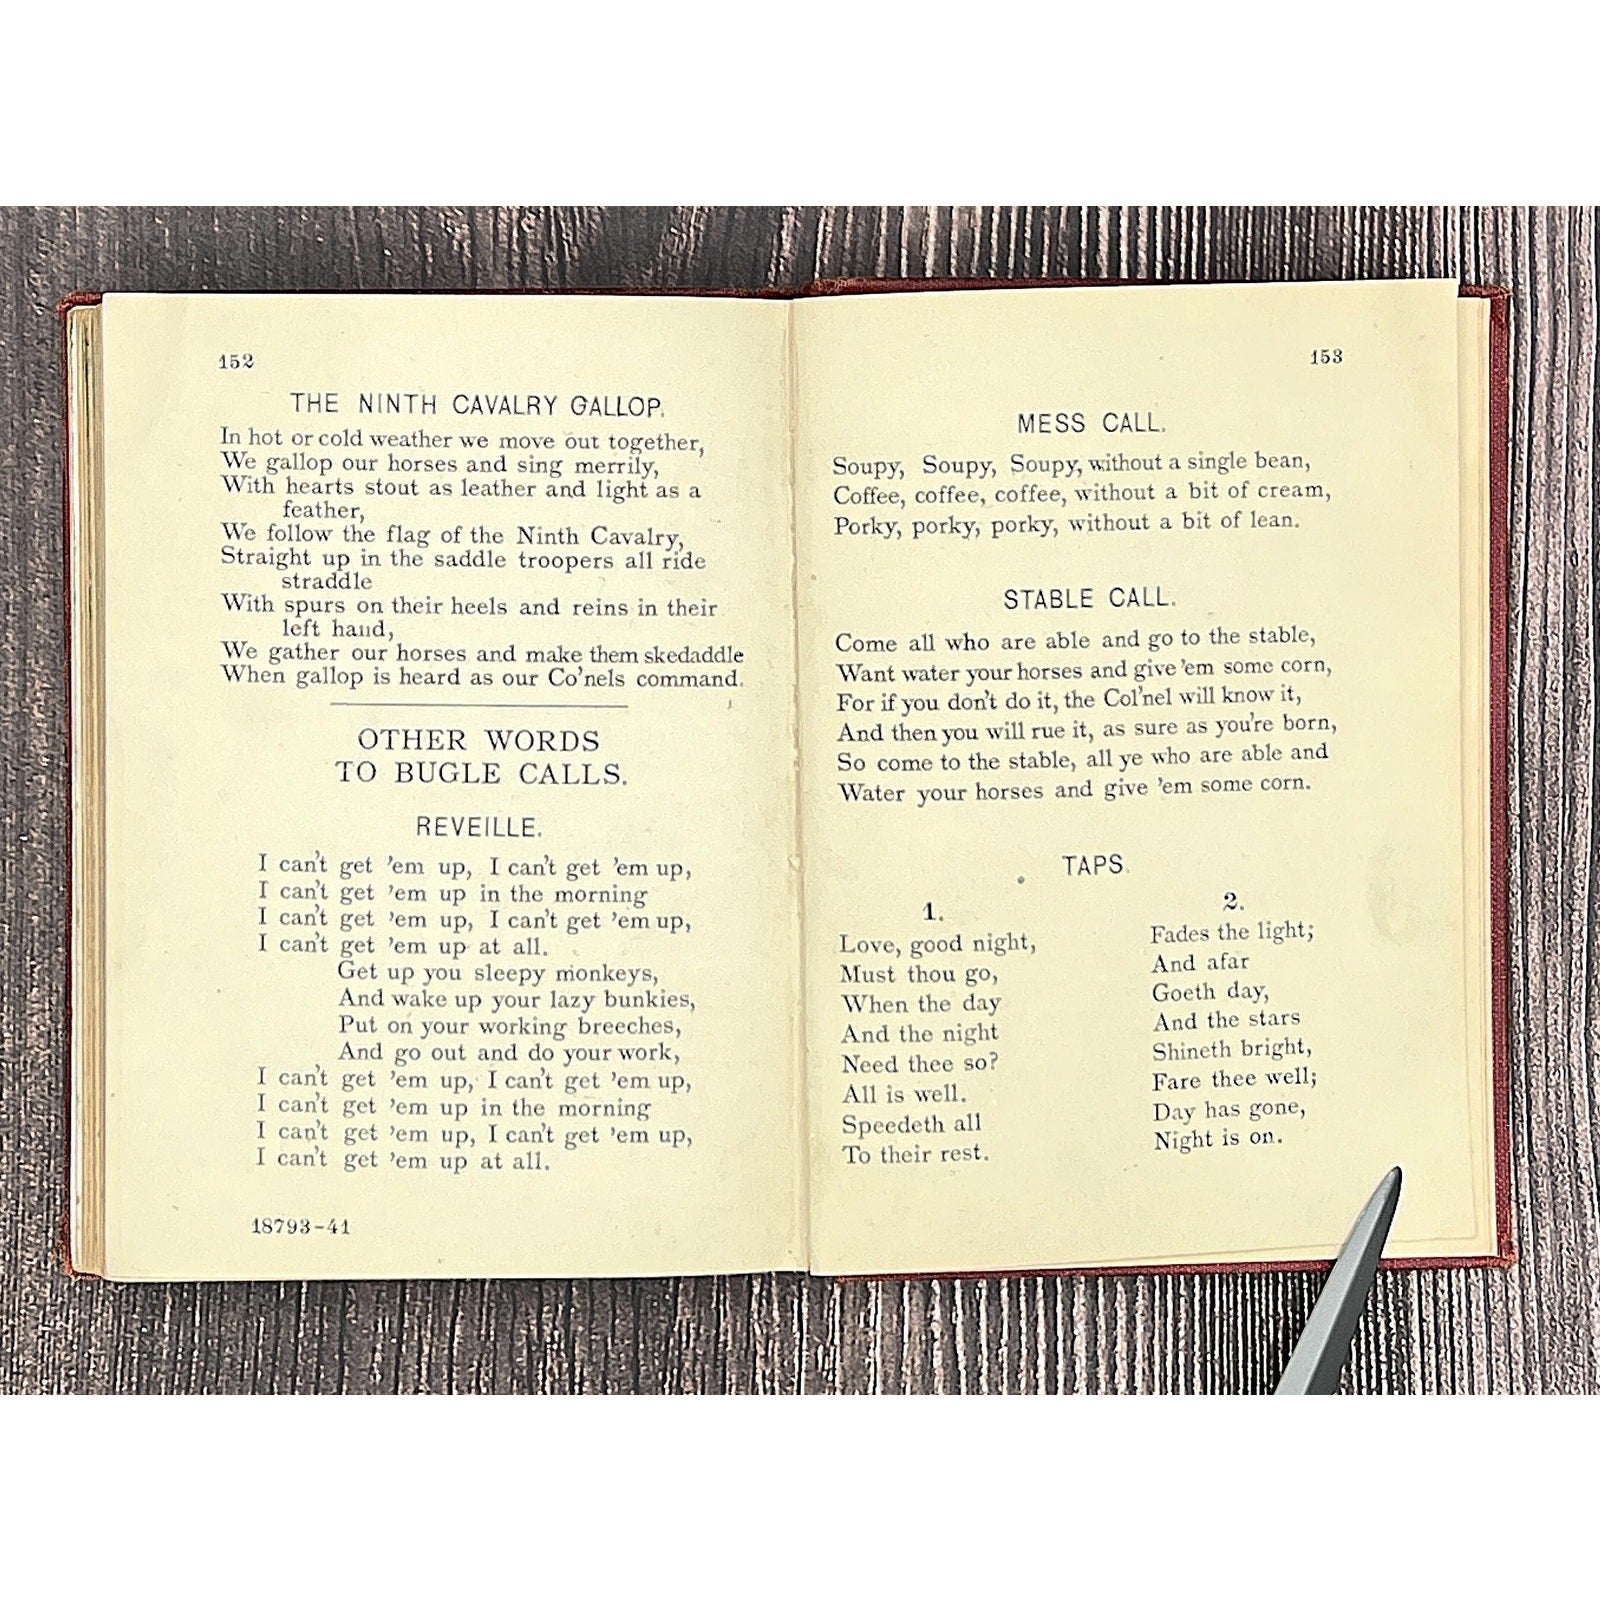 152
THE NINTH CAVALRY GALLOP.
In hot or cold weather we move out together,
We gallop our horses and sing merrily,
With hearts stout as leather and light as a
feather,
We follow the flag of the Ninth Cavalry,
Straight up in the saddle troopers all ride
straddle
With spurs on their heels and reins in their
left hand,
We gather our horses and make them skedaddle
When gallop is heard as our Co'nels command.
OTHER WORDS
TO BUGLE CALLS.
REVEILLE.
I can't get 'em up, I can't get 'em up,
I can't get 'em up in the morning
I can't get 'em up, I can't get 'em up,
I can't get 'em up at all.
Get up you sleepy monkeys,
And wake up your lazy bunkies,
Put on your working breeches,
And go out and do your work,
I can't get 'em up, I can't get 'em up,
I can't get 'em up in the morning
I can't get 'em up, I can't get 'em up,
I can't get 'em up at all.
18793-41
153
MESS CALL.
Soupy, Soupy, Soupy, without a single bean,
Coffee, coffee, coffee, without a bit of cream,
Porky, porky, porky, without a bit of lean.
STABLE CALL.
Come all who are able and go to the stable,
Want water your horses and give 'em some corn,
For if you don't do it, the Col'nel will know it,
And then you will rue it, as sure as you're born,
So come to the stable, all ye who are able and
Water your horses and give 'em some corn.
TAPS.
1.
Love, good night,
Must thou go,
When the day
And the night
Need thee so?
All is well.
Speedeth all
To their rest.
2.
Fades the light;
And afar
Goeth day,
And the stars
Shineth bright,
Fare thee well;
Day has gone,
Night is on.